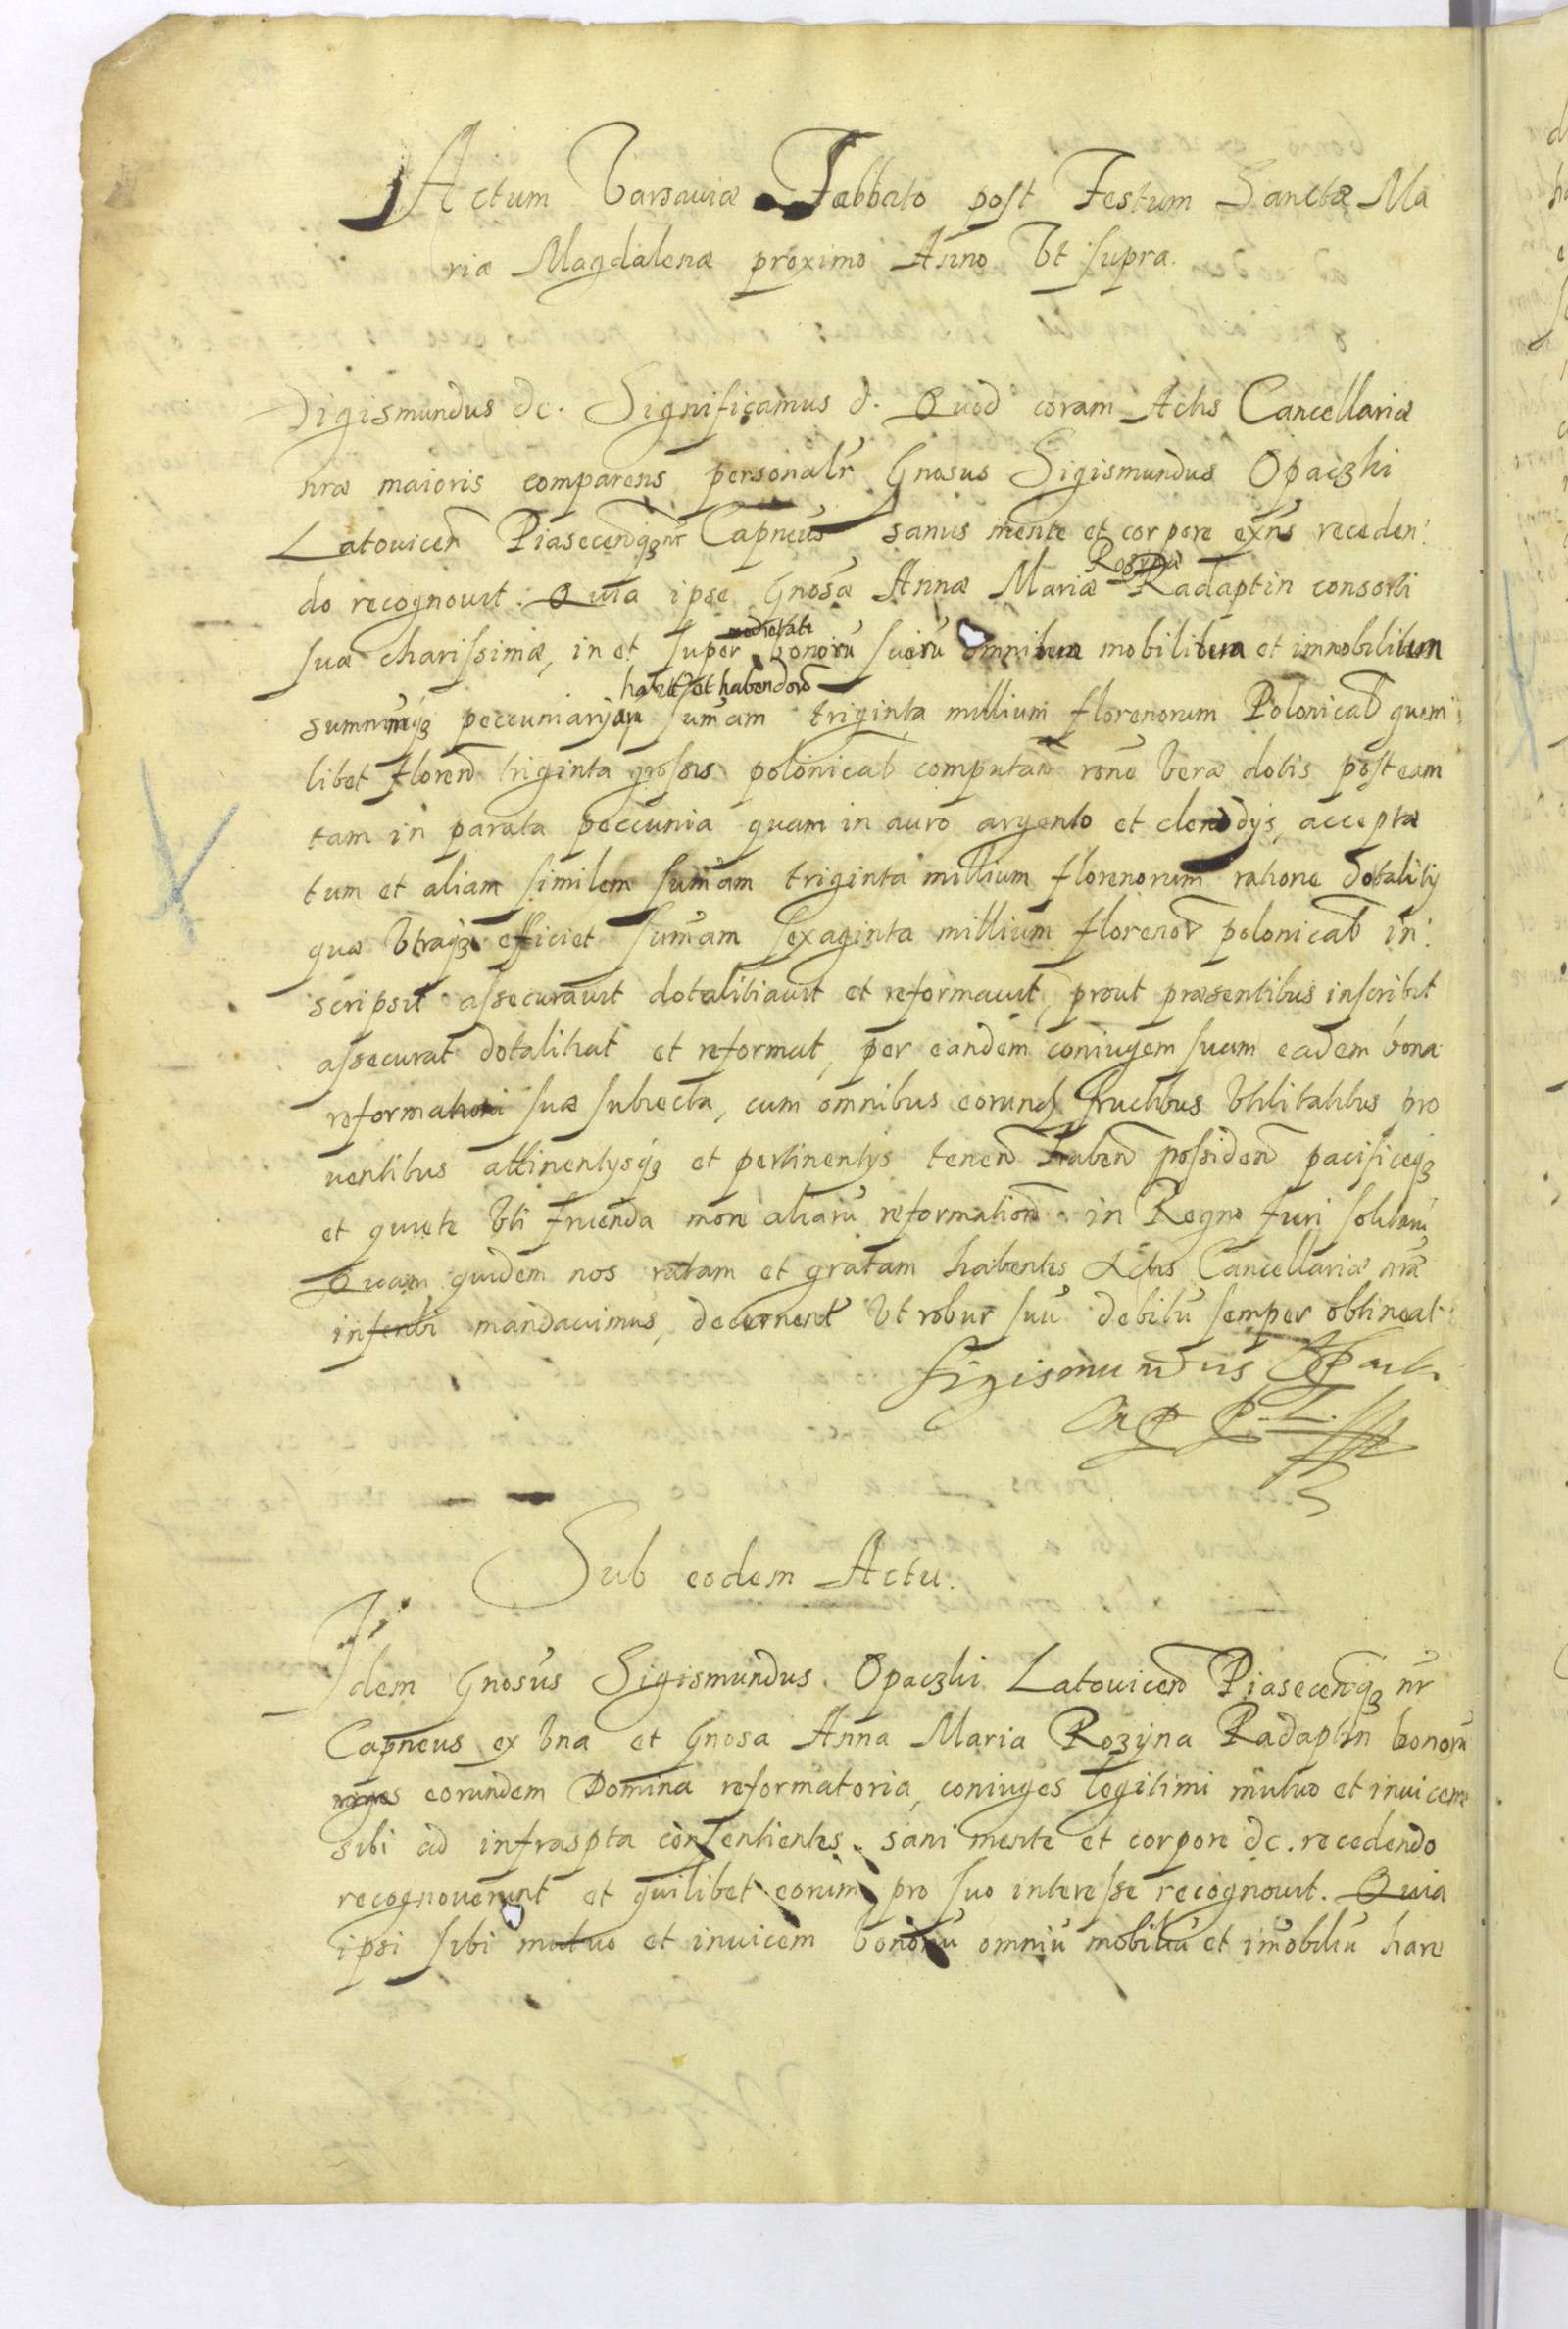 Actum Varsauiæ Sabbato post Festum Sanctæ Ma
riæ Magdalenæ proximo Anno Vt supra.
Sigismundus &c. Significamus &. Quod coram Actis Cancellariæ
nræ maioris comparens personalr Gnosus Sigismundus Opaczki
Latouicen Piasecenqȝ nr Capneus sanus mente et corpore exns receden
do recognouit. Quia ipse Gnosæ Annæ Mariæ Rozyna Radaptin consorti
suæ charissimæ, in et super medietate bonorũ suorũ omnium mobilium et immobilium
habit et habendorũ
summũqȝ peccuniariarũ sumam triginta millium florenorum Polonical quem
libet floren triginta grossis polonical computan rone veræ dotis post eam
tam in parata peccunia quam in auro argento et clenodys, acceptæ
tum et aliam similem sumam triginta millium florenorum ratione dotality
quæ Vtraqȝ efficiet sumam sexaginta millium florenor polonical in
scripsit assecurauit dotalitiauit et reformauit, prout præsentibus inscribit
assecurat dotalitiat et reformat, per eandem coniugem suam eadem bona
reformationi suæ subiecta, cum omnibus eorund fructibus Vtilitatibus pro
uentibus attinentysqȝ et pertinentys tenen haben possiden pacificeqȝ
et quiete Vti fruenda more aliarũ reformation in Regno fieri solitarũ
Quam quidem nos ratam et gratam habentes Actis Cancellariæ nræ
inscribi mandauimus, decernent Vt robur suũ debitũ semper obtineat.
Sigismundus Opacki
Sub eodem Actu.
Idem Gnosus Sigismundus Opaczki Latouicen Piasecenqȝ nr
Capneus ex Vna et Gnosa Anna Maria Rozyna Radaptin bonorũ
eorundem Domina reformatoria, coniuges legitimi mutuo et inuicem
sibi ad infraspta consentientes sani mente et corpore &c. recedendo
recognouerunt et quilibet eorum pro suo interesse recognouit. Quia
ipsi sibi mutuo et inuicem bonorũ omniũ mobiliũ et imobiliũ hære